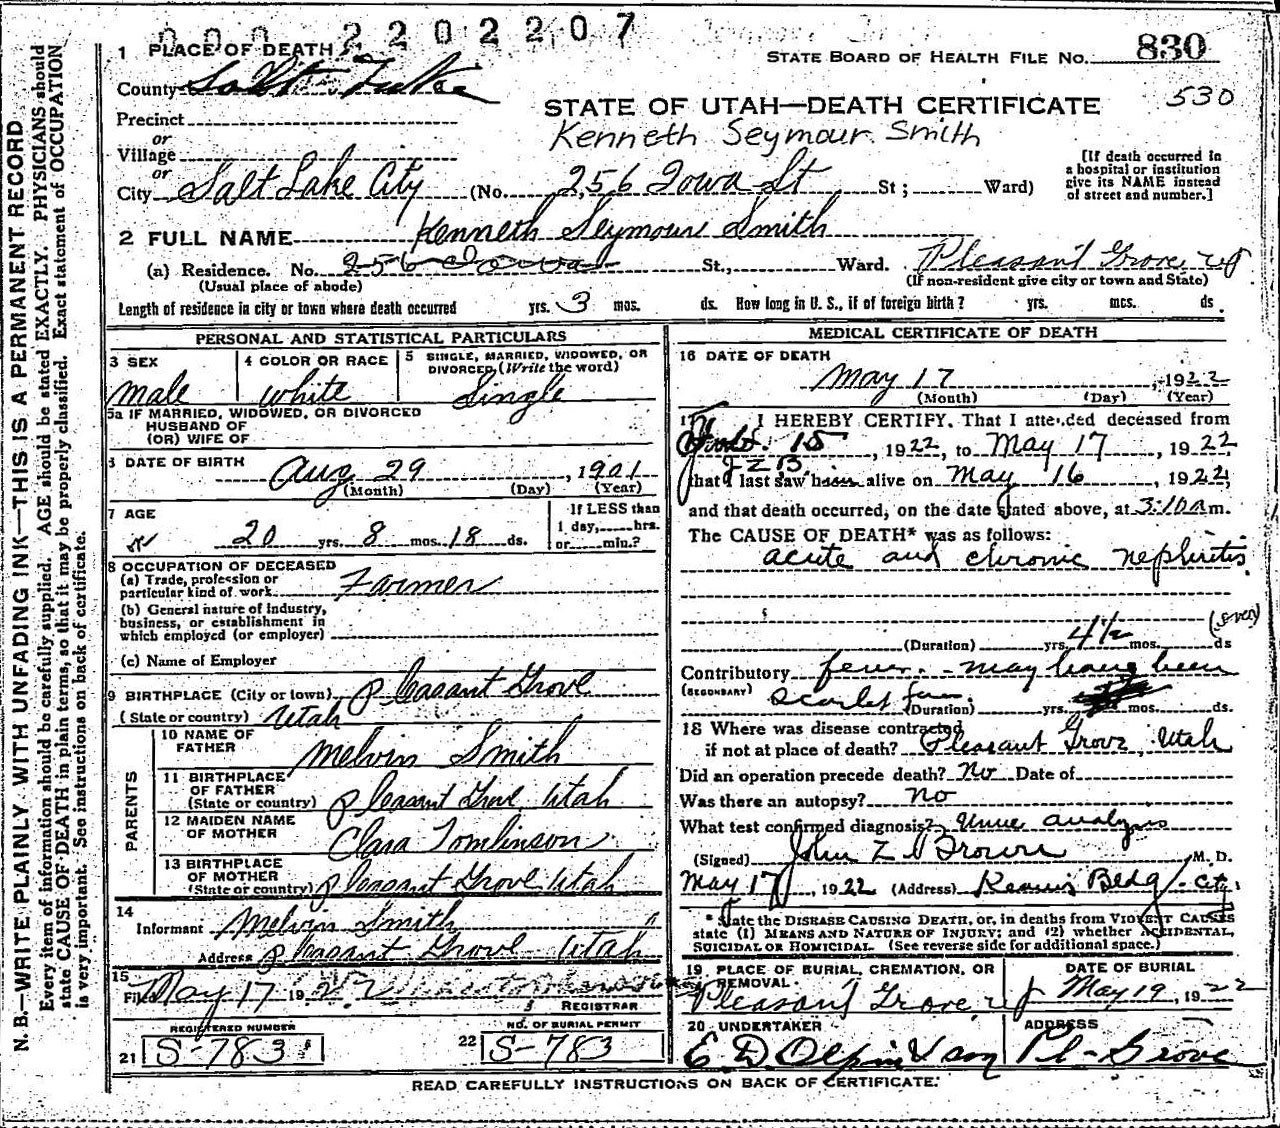 0 0 0 2 2 0 2 2 0 7
STATE BOARD OF HEALTH FILE NO. 830
530
1 PLACE OF DEATH
County Salt Lake
STATE OF UTAH—DEATH CERTIFICATE
Precinct
Kenneth Seymour Smith
or
Village
or
City Salt Lake City (No. 256 Iowa St St; Ward)
[If death occurred in
a hospital or institution
give its NAME instead
of street and number.]
2 FULL NAME Kenneth Seymour Smith
(a) Residence. No. 256 Iowa St., Ward. Pleasant Grove, Ut
(Usual place of abode) (If non-resident give city or town and State)
Length of residence in city or town where death occurred yrs. 3 mos. ds. How long in U. S., if of foreign birth? yrs. mos. ds.
PERSONAL AND STATISTICAL PARTICULARS
3 SEX
male
4 COLOR OR RACE
white
5 SINGLE, MARRIED, WIDOWED, OR
DIVORCED (Write the word)
Single
5a IF MARRIED, WIDOWED, OR DIVORCED
HUSBAND OF
(OR) WIFE OF
6 DATE OF BIRTH Aug 29, 1901
(Month) (Day) (Year)
7 AGE
20 yrs. 8 mos. 18 ds.
If LESS than
1 day, hrs.
or min.?
8 OCCUPATION OF DECEASED
(a) Trade, profession or
particular kind of work Farmer
(b) General nature of Industry,
business, or establishment in
which employed (or employer)
(c) Name of Employer
9 BIRTHPLACE (City or town) Pleasant Grove
(State or country) Utah
PARENTS
10 NAME OF
FATHER Melvin Smith
11 BIRTHPLACE
OF FATHER
(State or country) Pleasant Grove, Utah
12 MAIDEN NAME
OF MOTHER Clara Tomlinson
13 BIRTHPLACE
OF MOTHER
(State or country) Pleasant Grove Utah
14
Informant Melvin Smith
Address Pleasant Grove Utah
15
Filed May 17 1922
REGISTRAR
REGISTERED NUMBER
21 S-783
NO. OF BURIAL PERMIT
22 S-783
MEDICAL CERTIFICATE OF DEATH
16 DATE OF DEATH
May 17, 1922
(Month) (Day) (Year)
17 I HEREBY CERTIFY, That I attended deceased from
15, 1922, to May 17, 1922
JZB
that I last saw him alive on May 16, 1922,
and that death occurred, on the date stated above, at 3:10 a m.
The CAUSE OF DEATH* was as follows:
acute and chronic nephritis
(over)
(Duration) yrs. 4 1/2 mos. ds
Contributory fever - may have been
(SECONDARY) scarlet fever
(Duration) yrs. mos. ds.
18 Where was disease contracted
if not at place of death? Pleasant Grove, Utah
Did an operation precede death? No Date of
Was there an autopsy? no
What test confirmed diagnosis? Urine analysis
(Signed) John Z Brown M. D.
May 17, 1922 (Address) Kearns Bldg - City
* State the DISEASE CAUSING DEATH, or, in deaths from VIOLENT CAUSES
state (1) MEANS AND NATURE OF INJURY; and (2) whether ACCIDENTAL,
SUICIDAL OR HOMICIDAL. (See reverse side for additional space.)
19 PLACE OF BURIAL, CREMATION, OR
REMOVAL
Pleasant Grove, Ut
DATE OF BURIAL
May 19, 1922
20 UNDERTAKER
E D Olpin & Son
ADDRESS
Pl-Grove
READ CAREFULLY INSTRUCTIONS ON BACK OF CERTIFICATE.
N. B.—WRITE PLAINLY WITH UNFADING INK—THIS IS A PERMANENT RECORD
Every item of information should be carefully supplied. AGE should be stated EXACTLY. PHYSICIANS should
state CAUSE OF DEATH in plain terms, so that it may be properly classified. Exact statement of OCCUPATION
is very important. See instructions on back of certificate.